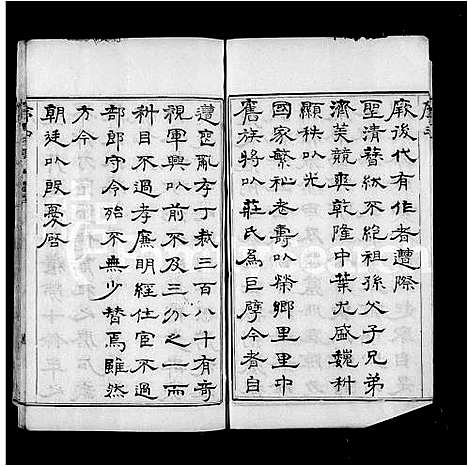 厥後代有作者遭際
聖清簪紱不絕祖孫父子兄弟
濟美競爽乾隆中葉尤盛巍科
顯秩以光
國家蕃祉耆壽以榮鄉里里中
舊族將以莊氏為巨擘今者自
遭寇亂存丁裁三百八十有奇
視軍興以前不及三分之一而
科目不過孝廉明經仕宦不過
部郎守令殆不無少替焉雖然
方今
朝廷以殷憂啟